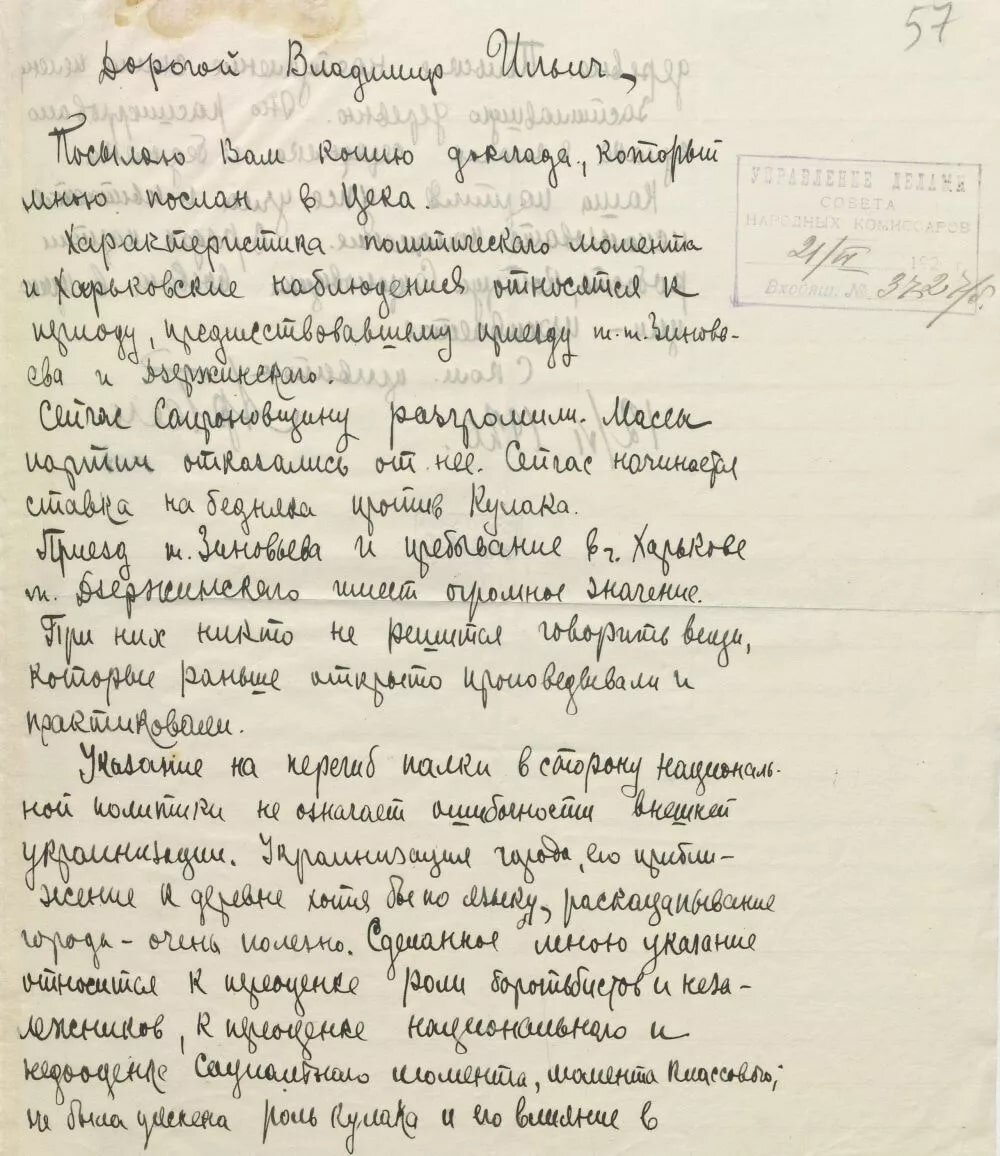 57
Дорогой Владимир Ильич,
Посылаю Вам копию доклада, который
мною послан в Цека.
УПРАВЛЕНИЕ ДЕЛАМИ
СОВЕТА
НАРОДНЫХ КОМИССАРОВ
21/VI 192 г.
Входящ. № 3727/б.
Характеристика политического момента
и Харьковские наблюдения относятся к
периоду, предшествовавшему приезду т.т. Зиновь-
ева и Дзержинского.
Сейчас Сапроновщину разгромили. Массы
партии отказались от нее. Сейчас начинается
ставка на бедняка против Кулака.
Приезд т. Зиновьева и пребывание в г. Харькове
т. Дзержинского имеет огромное значение.
При них никто не решится говорить вещи,
которые раньше открыто проповедывали и
практиковали.
Указание на перегиб палки в сторону националь-
ной политики не означает ошибочности внешней
украинизации. Украинизация города, его прибли-
жение к деревне хотя бы по языку, раскацапывание
города - очень полезно. Сделанное мною указание
относится к переоценке роли боротьбистов и неза-
лежников, к переоценке национального и
недооценке социального момента, момента классового;
не была уяснена роль кулака и его влияние в